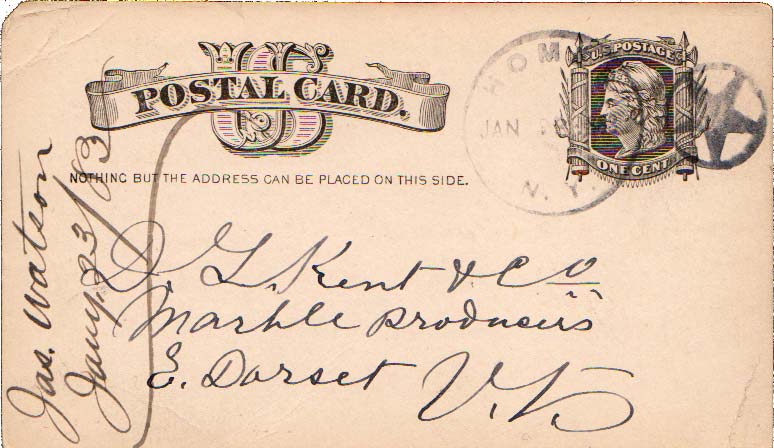 US
POSTAL CARD.
NOTHING BUT THE ADDRESS CAN BE PLACED ON THIS SIDE.
U.S. POSTAGE
ONE CENT
HOM
JAN
N.Y.
D. L. Kent & Co
Marble producers
E. Dorset V.t.
Jas. Watson
Jany. 23/83